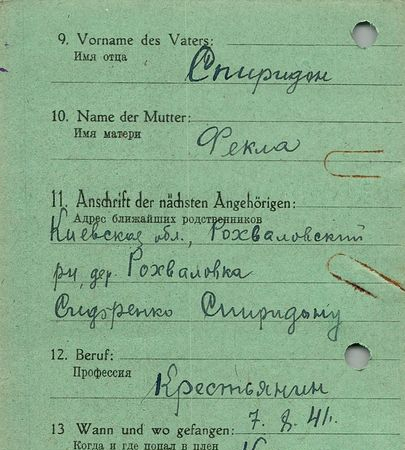 9. Vorname des Vaters:
Имя отца
Спиридон
10. Name der Mutter:
Имя матери
Фекла
11. Anschrift der nächsten Angehörigen:
Адрес ближайших родственников
Киевская обл., Рохваловский
рн, дер. Рохваловка
Сидоренко Спиридону
12. Beruf:
Профессия
Крестьянин
7. 8. 41.
13 Wann und wo gefangen:
Когда и где попал в плен